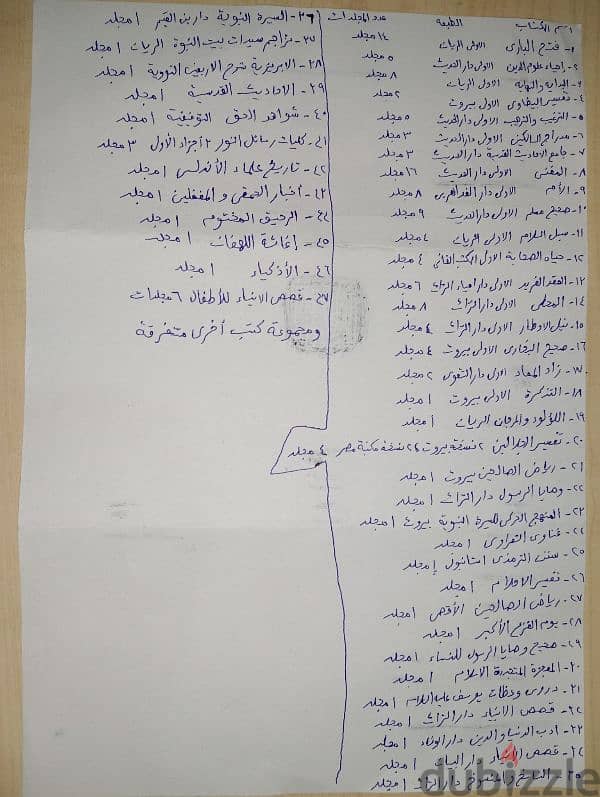 اسم الكتاب الطبعه عدد المجلدات
١- فتح البارى الاولى الريات ١٤ مجلد
٢- احياء علوم الدين الاولى دار الحديث ٥ مجلد
٣- البداية والنهاية الاولى الريات ٨ مجلد
٤- تفسير البيضاوى الاولى بيروت ٢ مجلد
٥- الترغيب والترهيب الاولى دار الحديث ٥ مجلد
٦- مدراج السالكين الاولى دار الحديث ٣ مجلد
٧- جامع الاحاديث القدسية دار الحديث ٣ مجلد
٨- المغنى الاولى دار الحديث ١٦ مجلد
٩- الأم الاولى دار الغد العربى ٨ مجلد
١٠- صحيح مسلم الاولى دار الحديث ٩ مجلد
١١- سبل السلام الاولى الريات ٤ مجلد
١٢- حياه الصحابة الاولى الكتب الثقافى ٤ مجلد
١٣- العقد الفريد الاولى دار احياء التراث ٦ مجلد
١٤- المحلى الاولى دار التراث ٨ مجلد
١٥- نيل الاوطار الاولى دار التراث ٤ مجلد
١٦- صحيح البخارى الاولى بيروت ٤ مجلد
١٧- زاد المعاد الاولى دار التقوى ٢ مجلد
١٨- التذكرة الاولى بيروت ١ مجلد
١٩- اللؤلؤ والمرجان الريات ١ مجلد
٢٠- تفسير الجلالين ٢ نسخة بيروت ٢ نسخة مكتبة مصر ٤ مجلد
٢١- رياض الصالحين بيروت ١ مجلد
٢٢- وصايا الرسول دار التراث ١ مجلد
٢٣- المنهج الحركى للسيرة النبوية بيروت ١ مجلد
٢٤- فتاوى الشعراوى ١ مجلد
٢٥- سنن الترمذى استانبول ١ مجلد
٢٦- تفسير الاحلام ١ مجلد
٢٧- رياض الصالحين الأقصى ١ مجلد
٢٨- يوم الفزع الأكبر ١ مجلد
٢٩- صحيح وصايا الرسول للنساء ١ مجلد
٣٠- المعجزة المتجددة الاسلام ١ مجلد
٣١- دروس وعظات يوسف عليه السلام ١ مجلد
٣٢- قصص الانبياء دار التراث ١ مجلد
٣٣- ادب الدنيا والدين دار الوفاء ١ مجلد
٣٤- قصص الأنبياء دار البيان ١ مجلد
٣٥- الناسخ والمنسوخ دار التراث ١ مجلد
٣٦- السيرة النبوية دار بن القيم ١ مجلد
٣٧- تراجم سيدات بيت النبوة الريات ١ مجلد
٣٨- شرح الاربعين النووية ١ مجلد
٣٩- الاحاديث القدسية ١ مجلد
٤٠- شواهد الحق التوفيقية ١ مجلد
٤١- كليات رسائل النور ٣ أجزاء الأول ٣ مجلد
٤٢- تاريخ علماء الأندلس ١ مجلد
٤٣- أخبار الحمقى والمغفلين ١ مجلد
٤٤- الرحيق المختوم ١ مجلد
٤٥- إغاثة اللهفان ١ مجلد
٤٦- الأذكياء ١ مجلد
٤٧- قصص الانبياء للأطفال ٦ مجلدات
ومجموعة كتب أخرى متفرقة
dubizzle